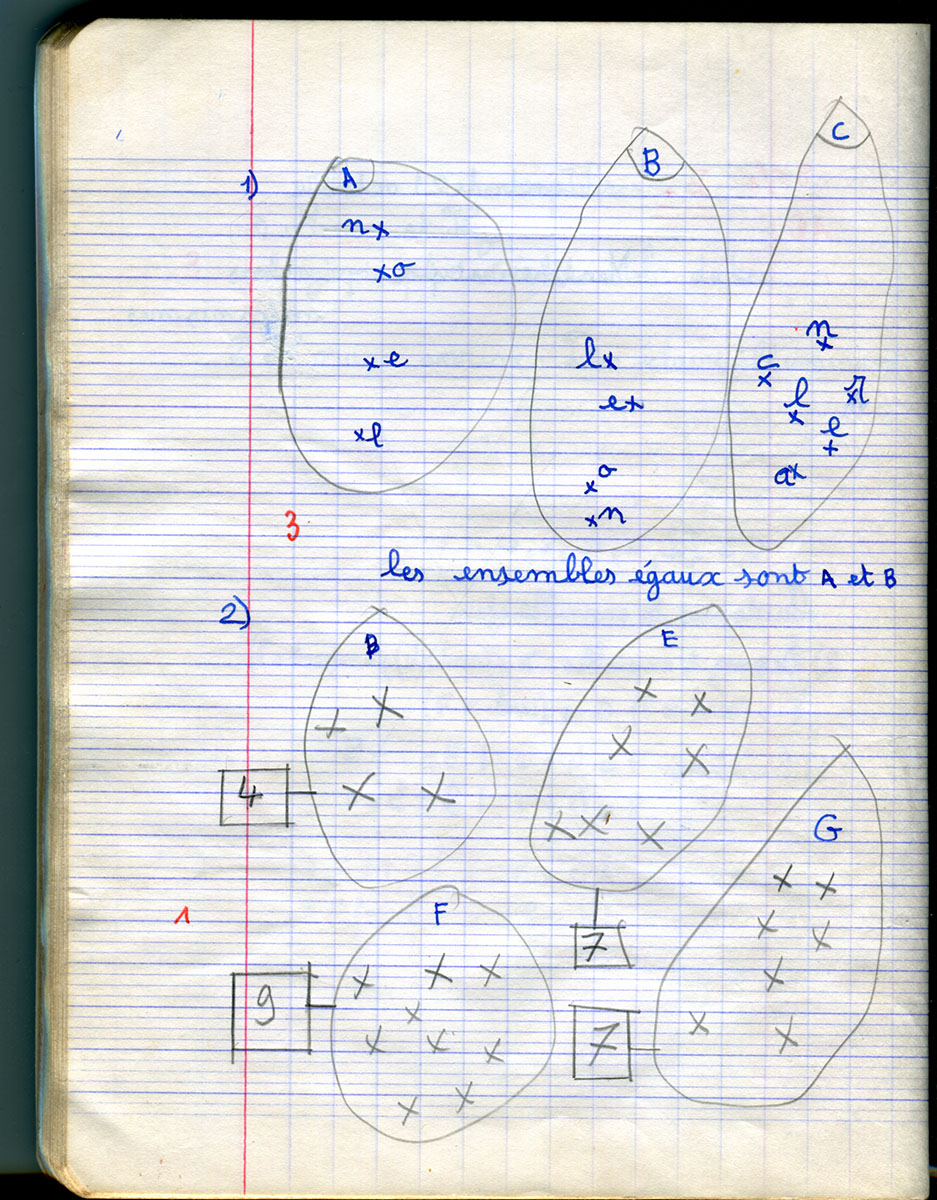 1)
A
B
C
n x
x o
x e
x l
l x
e x
x o
x n
n x
c x
l x
x r
e x
a x
3
les ensembles égaux sont A et B
2)
E
x x
x x
x x
x x
x x x
4
G
x x
x x
x
x x
1
F
7
x x x
x
x x x
x x
9
7